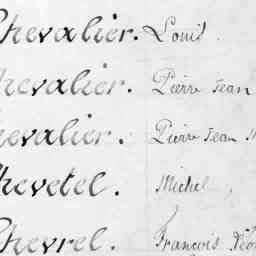 Chevalier. Louis.
Chevalier. Pierre Jean
Chevalier. Pierre Jean
Chevetel. Michel
Chevrel. François